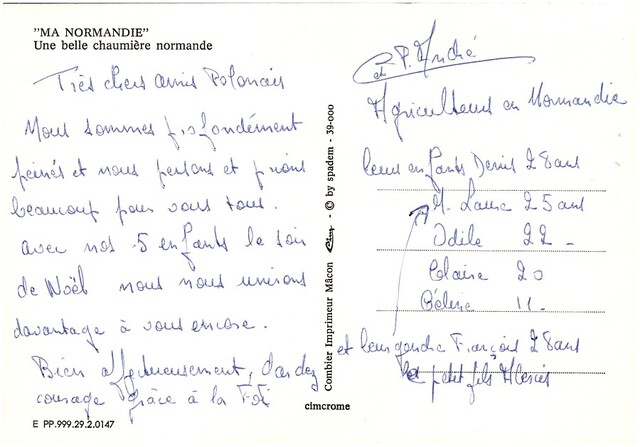 "MA NORMANDIE"
Une belle chaumière normande
Très chers amis Polonais
Nous sommes profondément
peinés et nous pensons et prions
beaucoup pour vous tous.
avec nos 5 enfants le soir
de Noël nous nous unirons
davantage à vous encore.
Bien affectueusement, Gardez
courage grâce à la Foi
E PP.999.29.2.0147
cimcrome
Combier Imprimeur Mâcon - © by spadem - 39-000
et P. André
Agriculteurs en Normandie
leurs enfants Denis 28 ans
M. Laure 25 ans
Odile 22 -
Claire 20
Hélène 11 -
et leur gendre François 28 ans
le petit fils Alexis